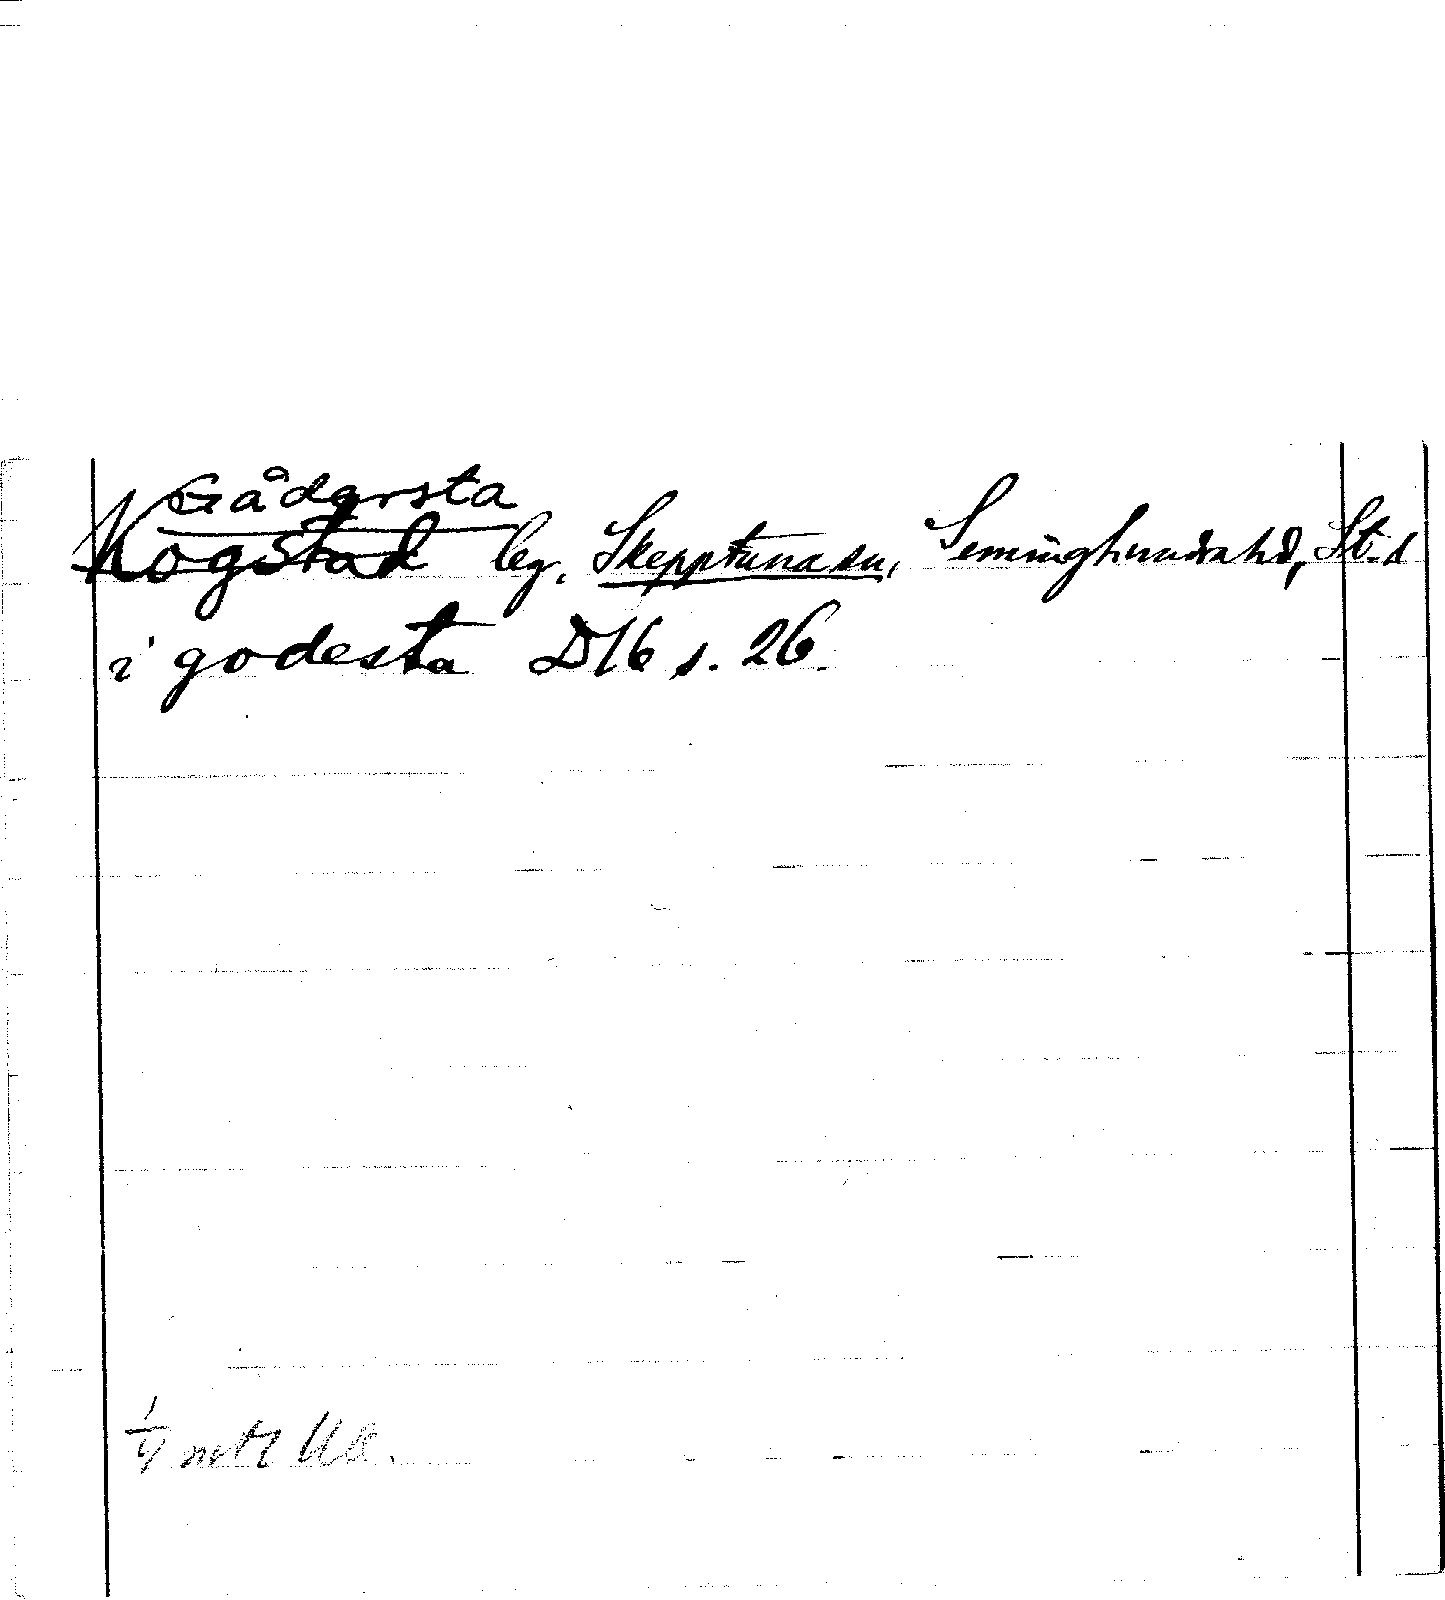 Gådersta
Kogstad by, Skepptuna sn, Seminghundra hd, St. l
i godesta D16 s. 26.